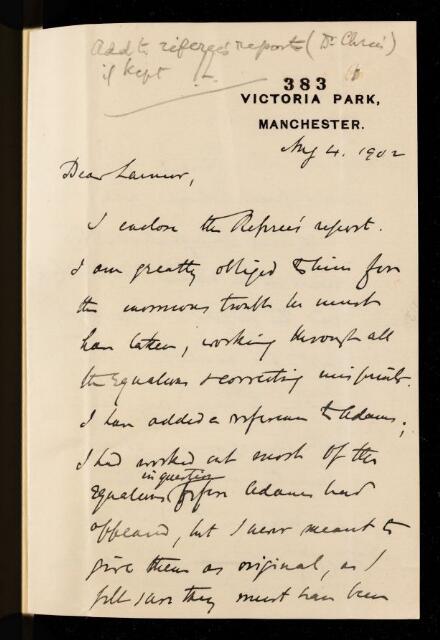 Add to referee's reports (Dr Chree's)
if kept JL
383
VICTORIA PARK,
MANCHESTER.
Aug 4. 1902
Dear Larmor,
I enclose the Referee's report.
I am greatly obliged to him for
the enormous trouble he must
have taken, working through all
the equations & correcting misprints.
I have added a reference to Adams;
I had worked out most of the
in question
equations before Adams had
appeared, but I never meant to
give them as original, as I
felt sure they must have been